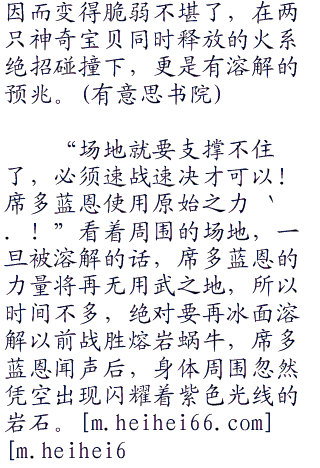 因而变得脆弱不堪了，在两
只神奇宝贝同时释放的火系
绝招碰撞下，更是有溶解的
预兆。(有意思书院)
“场地就要支撑不住
了，必须速战速决才可以！
席多蓝恩使用原始之力‵
．！”看着周围的场地，一
旦被溶解的话，席多蓝恩的
力量将再无用武之地，所以
时间不多，绝对要再冰面溶
解以前战胜熔岩蜗牛，席多
蓝恩闻声后，身体周围忽然
凭空出现闪耀着紫色光线的
岩石。[m.heihei66.com]
[m.heihei6